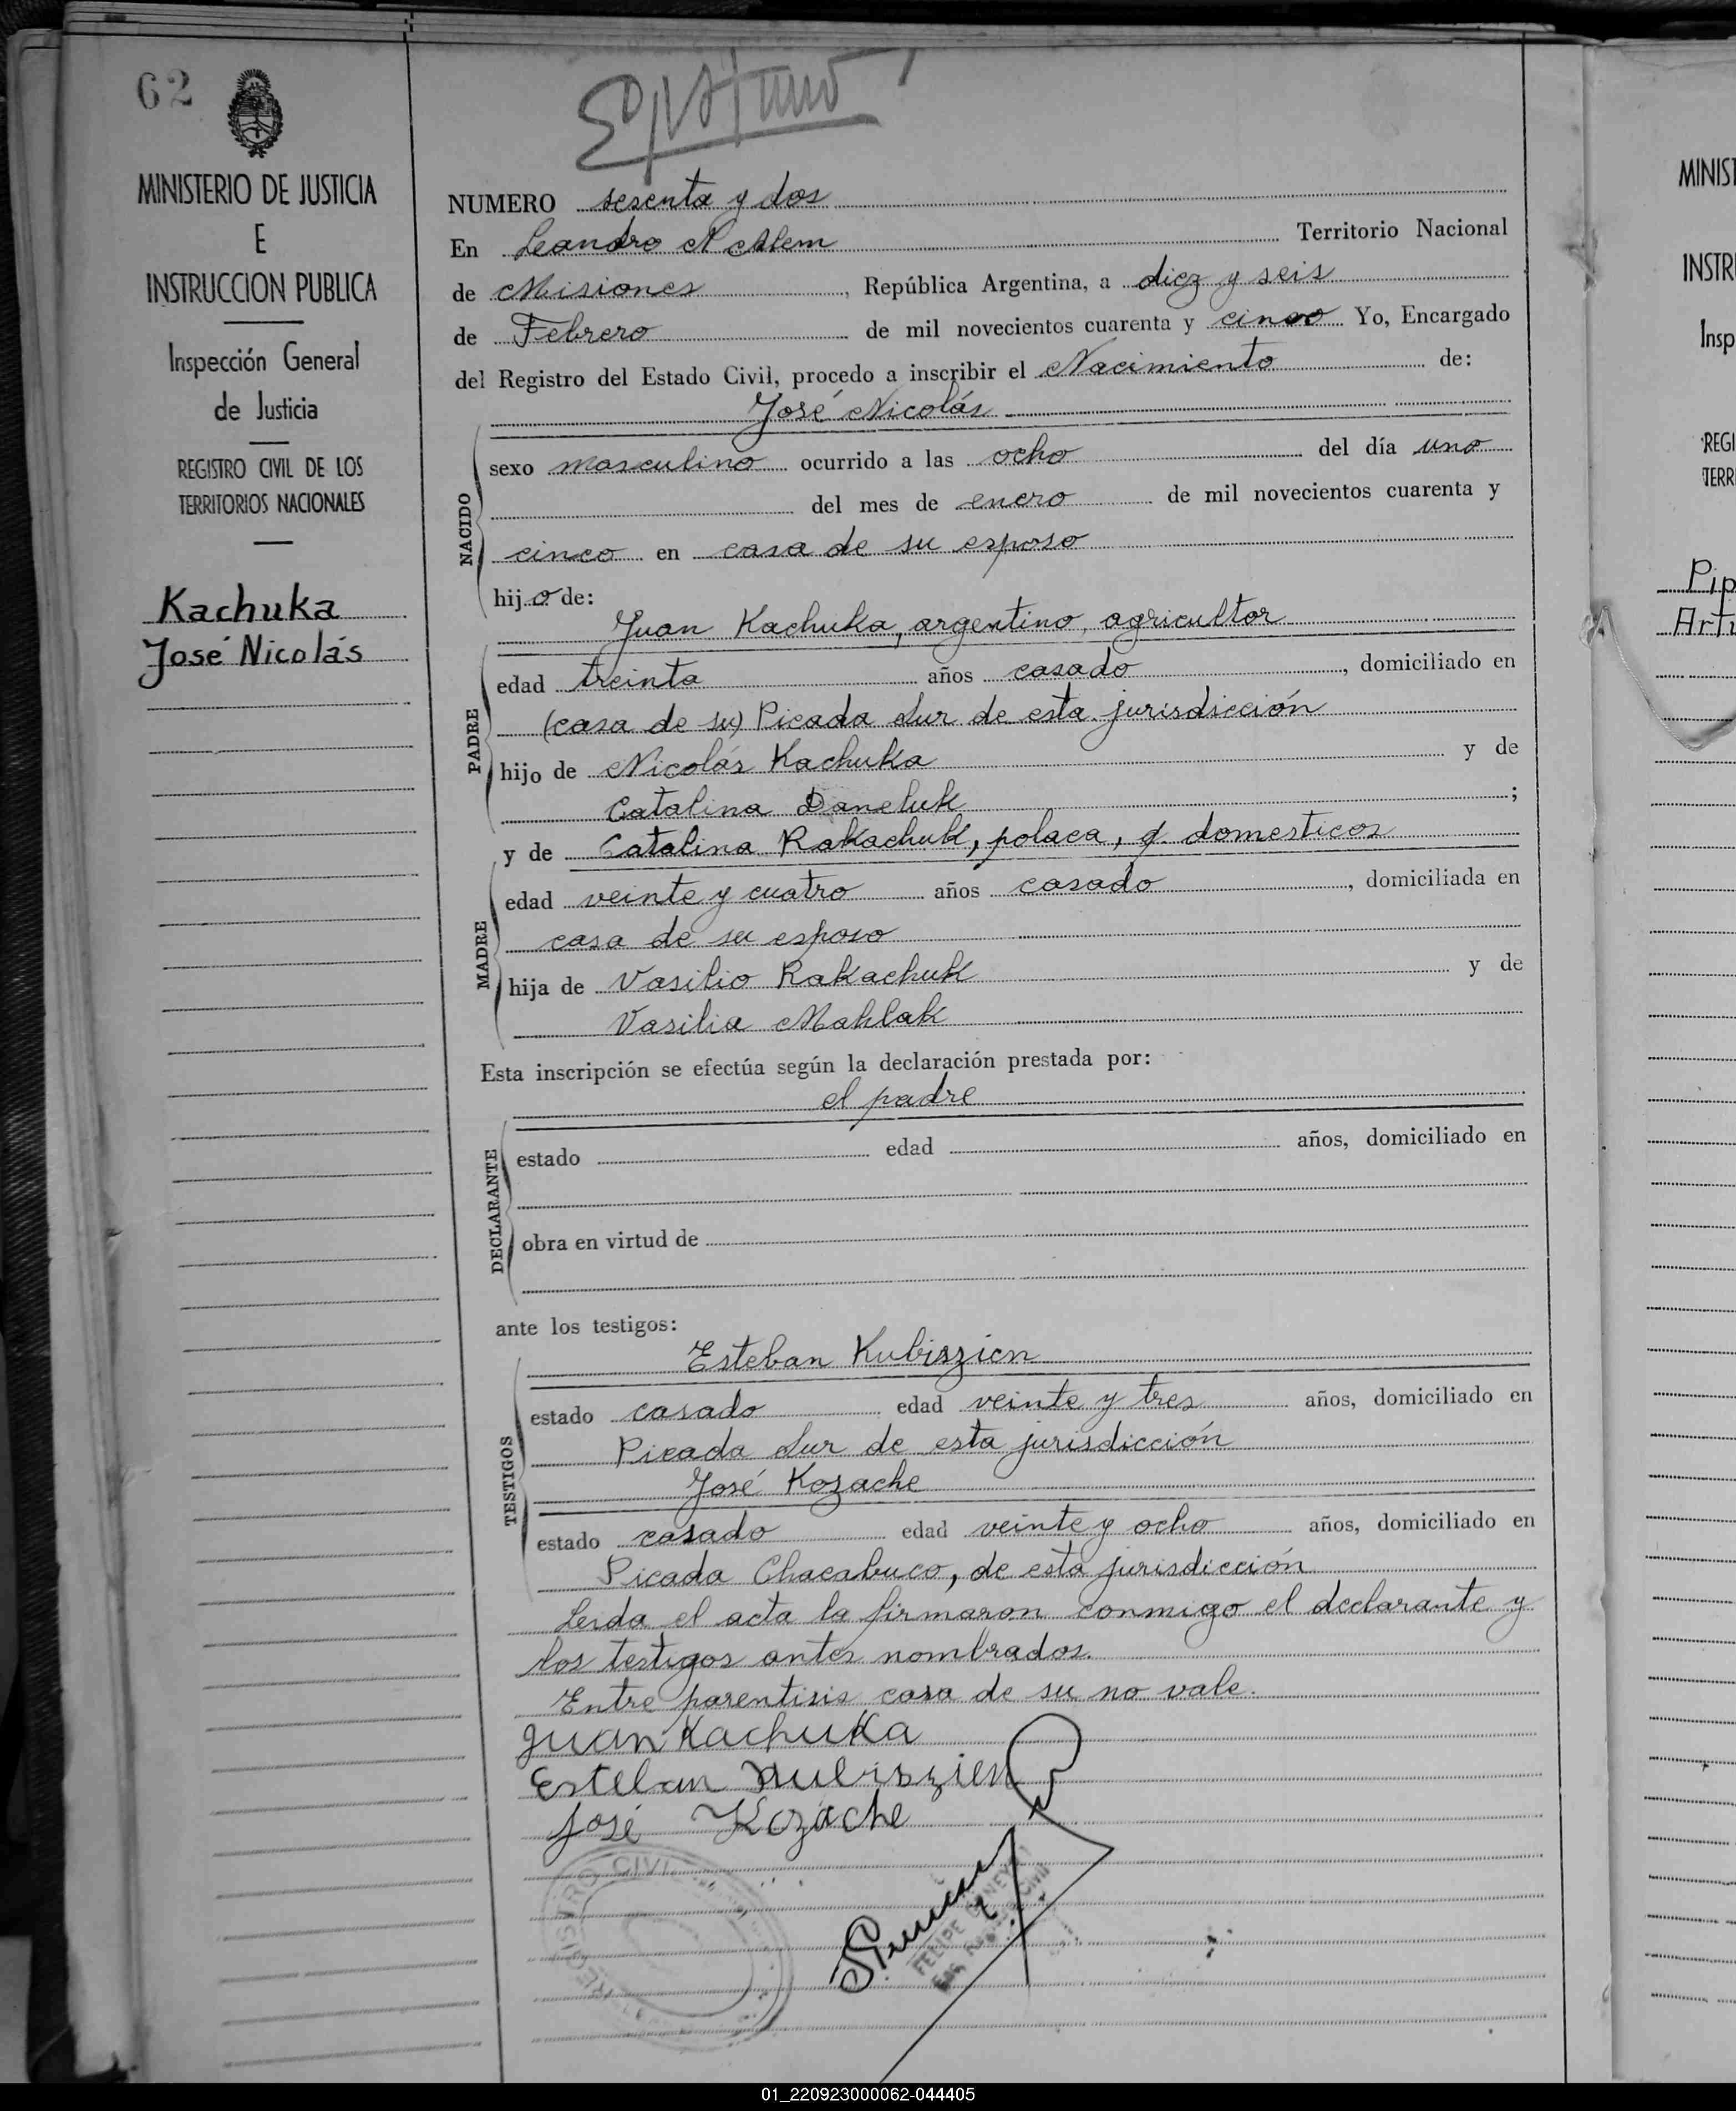 62
MINISTERIO DE JUSTICIA
E
INSTRUCCION PUBLICA
Inspección General
de Justicia
REGISTRO CIVIL DE LOS
TERRITORIOS NACIONALES
Kachuka
José Nicolás
NUMERO sesenta y dos
En Leandro N Alem Territorio Nacional
de Misiones, República Argentina, a diez y seis
de Febrero de mil novecientos cuarenta y cinco Yo, Encargado
del Registro del Estado Civil, procedo a inscribir el Nacimiento de:
José Nicolás
NACIDO
sexo masculino ocurrido a las ocho del día uno
del mes de enero de mil novecientos cuarenta y
cinco en casa de su esposo
hijo de:
Juan Kachuka, argentino, agricultor
PADRE
edad treinta años casado, domiciliado en
(casa de su) Picada Sur de esta jurisdicción
hijo de Nicolás Kachuka y de
Catalina Daneluk;
y de Catalina Rakachuk, polaca, q domesticos
MADRE
edad veinte y cuatro años casado, domiciliada en
casa de su esposo
hija de Vasilio Rakachuk y de
Vasilia Mahlak
Esta inscripción se efectúa según la declaración prestada por:
el padre
DECLARANTE
estado edad años, domiciliado en
obra en virtud de
ante los testigos:
Esteban Kubiszien
TESTIGOS
estado casado edad veinte y tres años, domiciliado en
Picada Sur de esta jurisdicción
José Kozache
estado casado edad veinte y ocho años, domiciliado en
Picada Chacabuco, de esta jurisdicción
Leida el acta la firmaron conmigo el declarante y
los testigos antes nombrados.
Entre parentisis casa de su no vale.
Juan Kachuka
Esteban Kubiszien
José Kozache
REGISTRO CIVIL
FELIPE
MINIST
INSTR
Insp
REGI
TERR
Pip
Artu
01_220923000062-044405